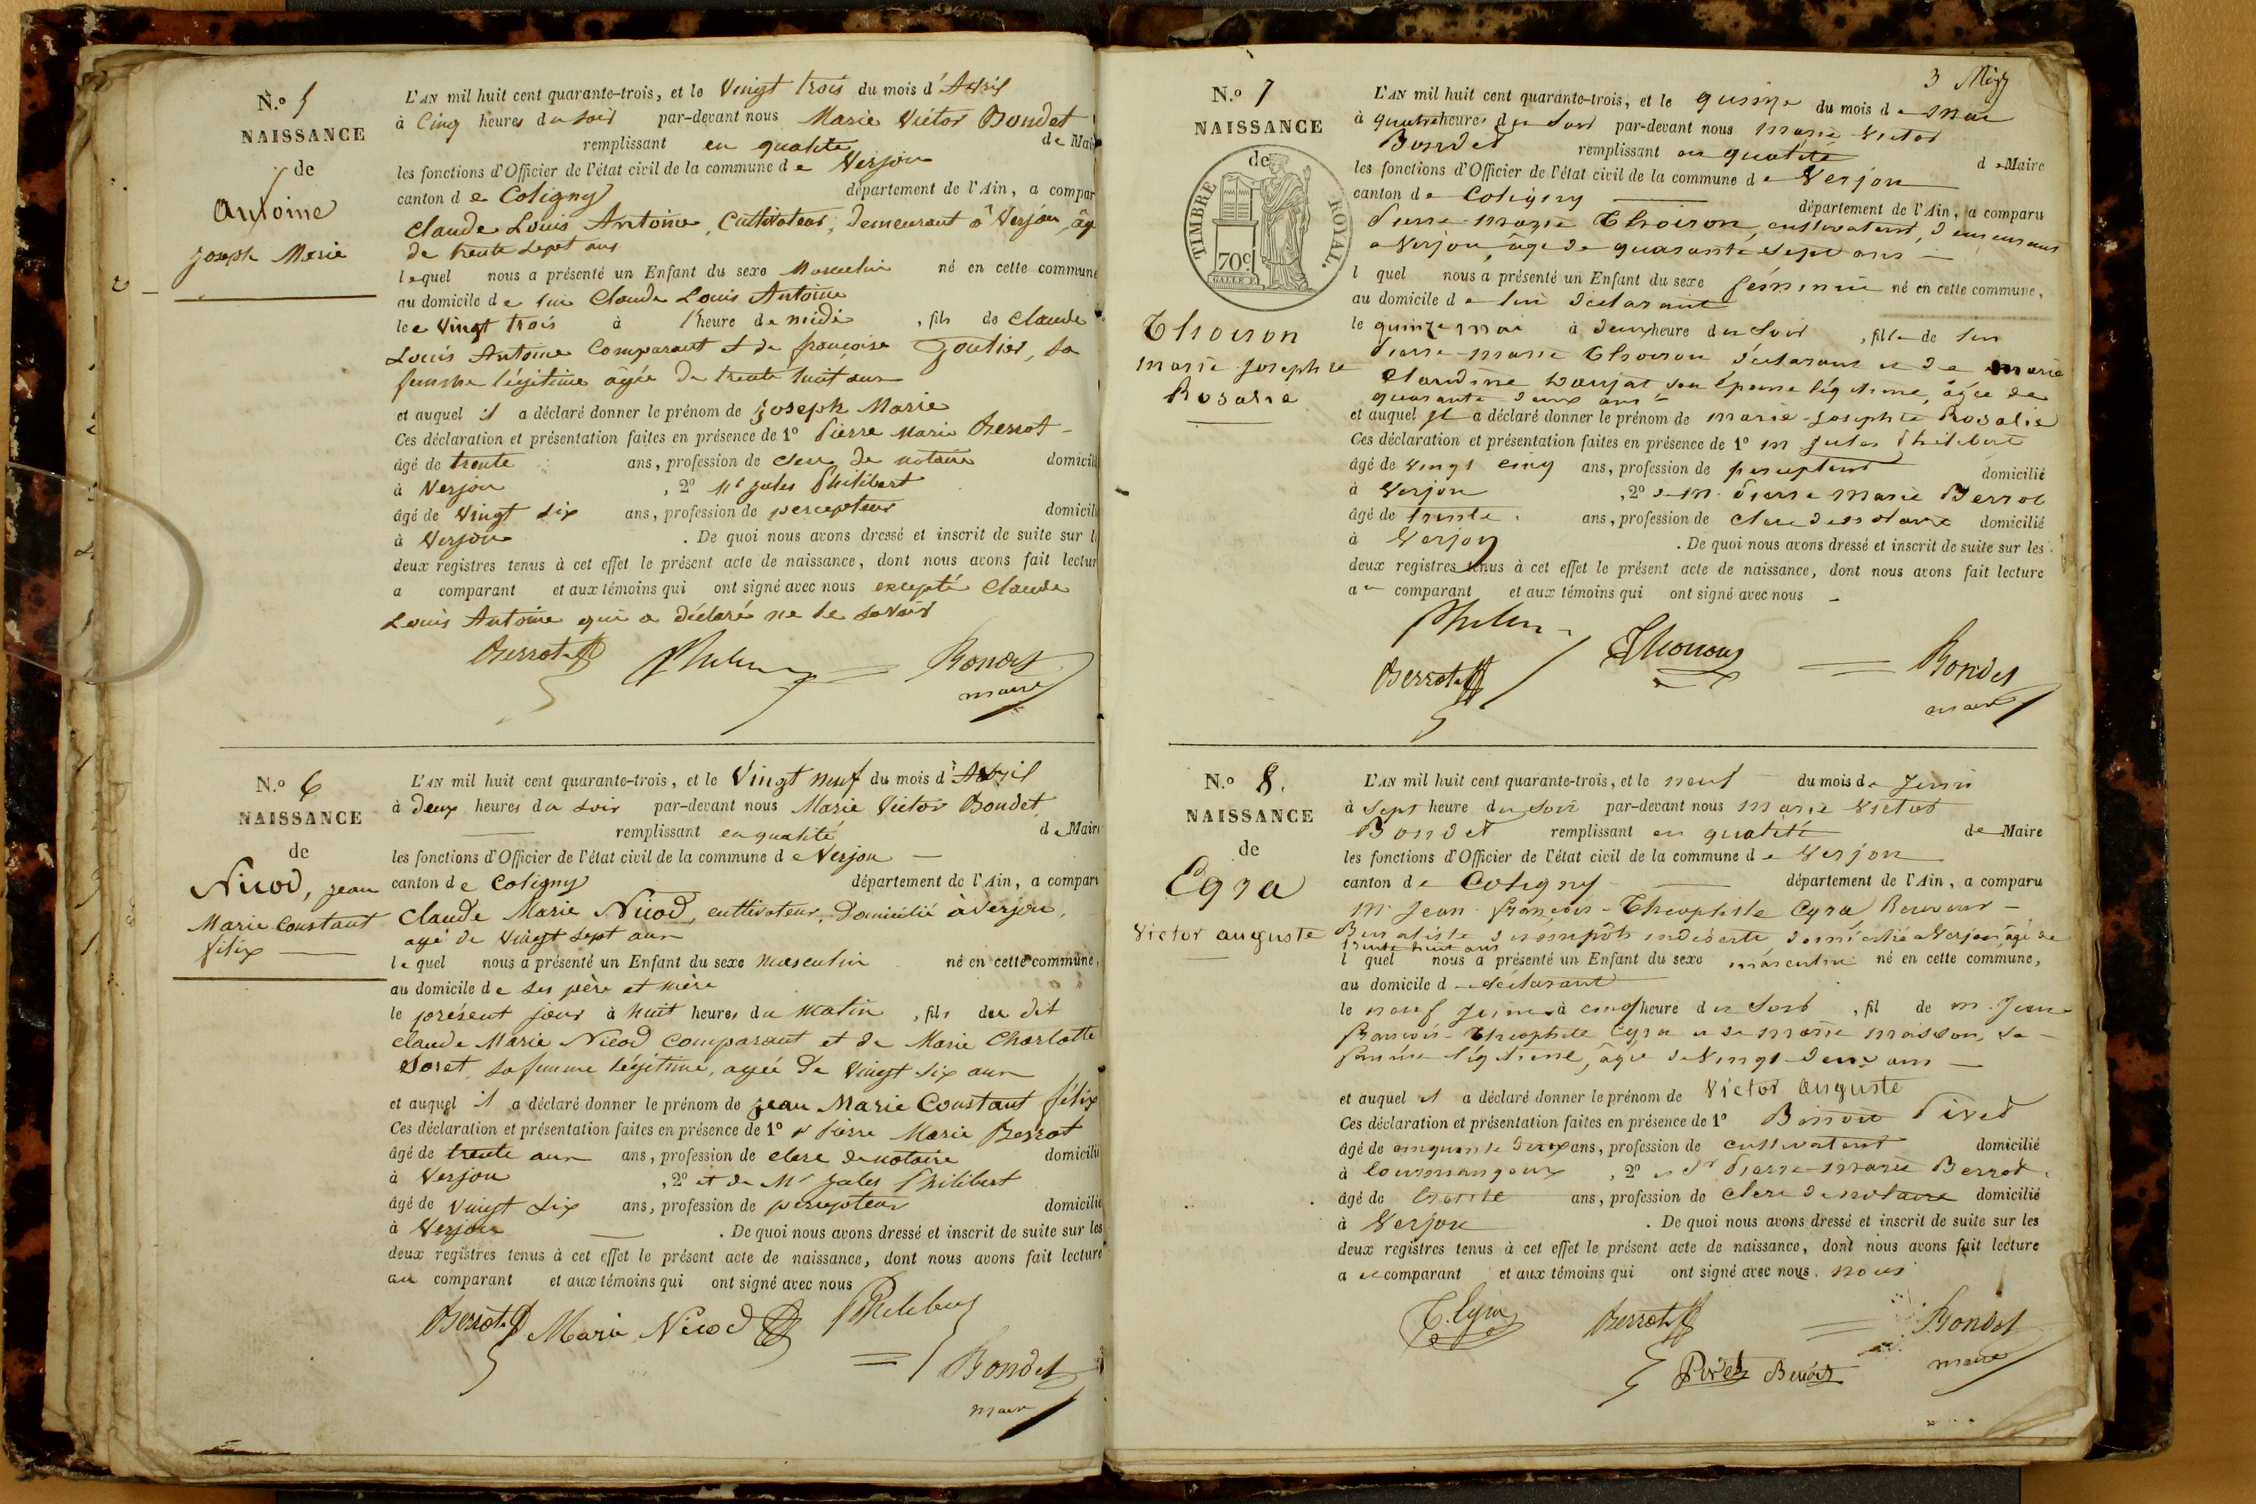 N.º 5
NAISSANCE
de
Antoine
Joseph Marie
L'AN mil huit cent quarante-trois, et le Vingt trois du mois d'Avril
à Cinq heures du soir par-devant nous Marie Victor Bondet
remplissant en qualité de Mai
les fonctions d'Officier de l'état civil de la commune de Verjon
canton de Coligny département de l'Ain, a compar
Claude Louis Antoine, Cultivateur, demeurant à Verjon, âg
de trente sept ans
lequel nous a présenté un Enfant du sexe Masculin né en cette commune
au domicile de lui Claude Louis Antoine
le Vingt trois à l'heure de midi, fils de Claude
Louis Antoine Comparant et de françoise Goutier, sa
femme légitime âgée de trente huit ans
et auquel il a déclaré donner le prénom de Joseph Marie
Ces déclaration et présentation faites en présence de 1º Pierre Marie Berrot
âgé de trente ans, profession de clerc de notaire domicili
à Verjon, 2º Mr Jules Philibert
âgé de Vingt six ans, profession de percepteur domicili
à Verjon. De quoi nous avons dressé et inscrit de suite sur l
deux registres tenus à cet effet le présent acte de naissance, dont nous avons fait lectur
a comparant et aux témoins qui ont signé avec nous excepté Claude
Louis Antoine qui a déclaré ne le savoir
Berrot Bondet
maire
N.º 6
NAISSANCE
de
Nicod, jean
Marie Constant
félix
L'AN mil huit cent quarante-trois, et le Vingt neuf du mois d'Avril
à deux heures du soir par-devant nous Marie Victor Bondet
remplissant en qualité de Maire
les fonctions d'Officier de l'état civil de la commune de Verjon
canton de Coligny département de l'Ain, a comparu
Claude Marie Nicod, cultivateur, domicilié à Verjon,
agé de vingt sept ans
lequel nous a présenté un Enfant du sexe masculin né en cette commune,
au domicile de ses père et mère
le présent jour à huit heures du matin, fils du dit
Claude Marie Nicod comparant et de Marie Charlotte
Soret, sa femme légitime, agée de vingt six ans
et auquel il a déclaré donner le prénom de jean Marie Constant félix
Ces déclaration et présentation faites en présence de 1º Pierre Marie Berrot
âgé de trente ans ans, profession de clerc de notaire domicilié
à Verjon, 2º et de Mr Jules Philibert
âgé de vingt six ans, profession de percepteur domicilié
à Verjon. De quoi nous avons dressé et inscrit de suite sur les
deux registres tenus à cet effet le présent acte de naissance, dont nous avons fait lecture
au comparant et aux témoins qui ont signé avec nous
Berrot Marie Nicod Philibert
Bondet
maire
3
N.º 7
NAISSANCE
de
TIMBRE ROYAL.
70c
Thoiron
Marie Josephte
Rosalie
L'AN mil huit cent quarante-trois, et le quinze du mois de mai
à quatre heures du soir par-devant nous Marie Victor
Bondet remplissant en qualité de Maire
les fonctions d'Officier de l'état civil de la commune de Verjon
canton de Coligny département de l'Ain, a comparu
Pierre Marie Thoiron, cultivateur, demeurant
a Verjon, âgé de quarante sept ans
l quel nous a présenté un Enfant du sexe féminin né en cette commune,
au domicile de lui déclarant
le quinze mai à deux heure du soir, fille de lui
Pierre-Marie Thoiron déclarant et de Marie
Claudine son épouse légitime, âgée de
quarante deux ans
et auquel il a déclaré donner le prénom de Marie Josephte Rosalie
Ces déclaration et présentation faites en présence de 1º M Jules Philibert
âgé de vingt cinq ans, profession de percepteur domicilié
à Verjon, 2º de M. Pierre Marie Berrot
âgé de trente ans, profession de clerc de notaire domicilié
à Verjon. De quoi nous avons dressé et inscrit de suite sur les
deux registres tenus à cet effet le présent acte de naissance, dont nous avons fait lecture
au comparant et aux témoins qui ont signé avec nous
Berrot Thoiron Bondet
maire
N.º 8.
NAISSANCE
de
Cyra
Victor auguste
L'AN mil huit cent quarante-trois, et le neuf du mois de Juin
à sept heure du soir par-devant nous Marie Victor
Bondet remplissant en qualité de Maire
les fonctions d'Officier de l'état civil de la commune de Verjon
canton de Coligny département de l'Ain, a comparu
M. Jean françois-Théophile Cyra Receveur
Buraliste d'impôts indirects, domicilié a Verjon, âgé de
trente huit ans
l quel nous a présenté un Enfant du sexe masculin né en cette commune,
au domicile d déclarant
le neuf Juin à cinq heure du soir, fil de M. Jean
François-Théophile Cyra et de Marie Masson, sa
femme légitime, âgée de Vingt-deux ans
et auquel il a déclaré donner le prénom de Victor Auguste
Ces déclaration et présentation faites en présence de 1º Benoit Pivet
âgé de cinquante deux ans, profession de cultivateur domicilié
à Courmangoux, 2º et Sr Pierre-Marie Berrot
âgé de trente ans, profession de clerc de notaire domicilié
à Verjon. De quoi nous avons dressé et inscrit de suite sur les
deux registres tenus à cet effet le présent acte de naissance, dont nous avons fait lecture
a comparant et aux témoins qui ont signé avec nous. nous
T. Cyra Berrot Bondet
Pivet Benoit maire